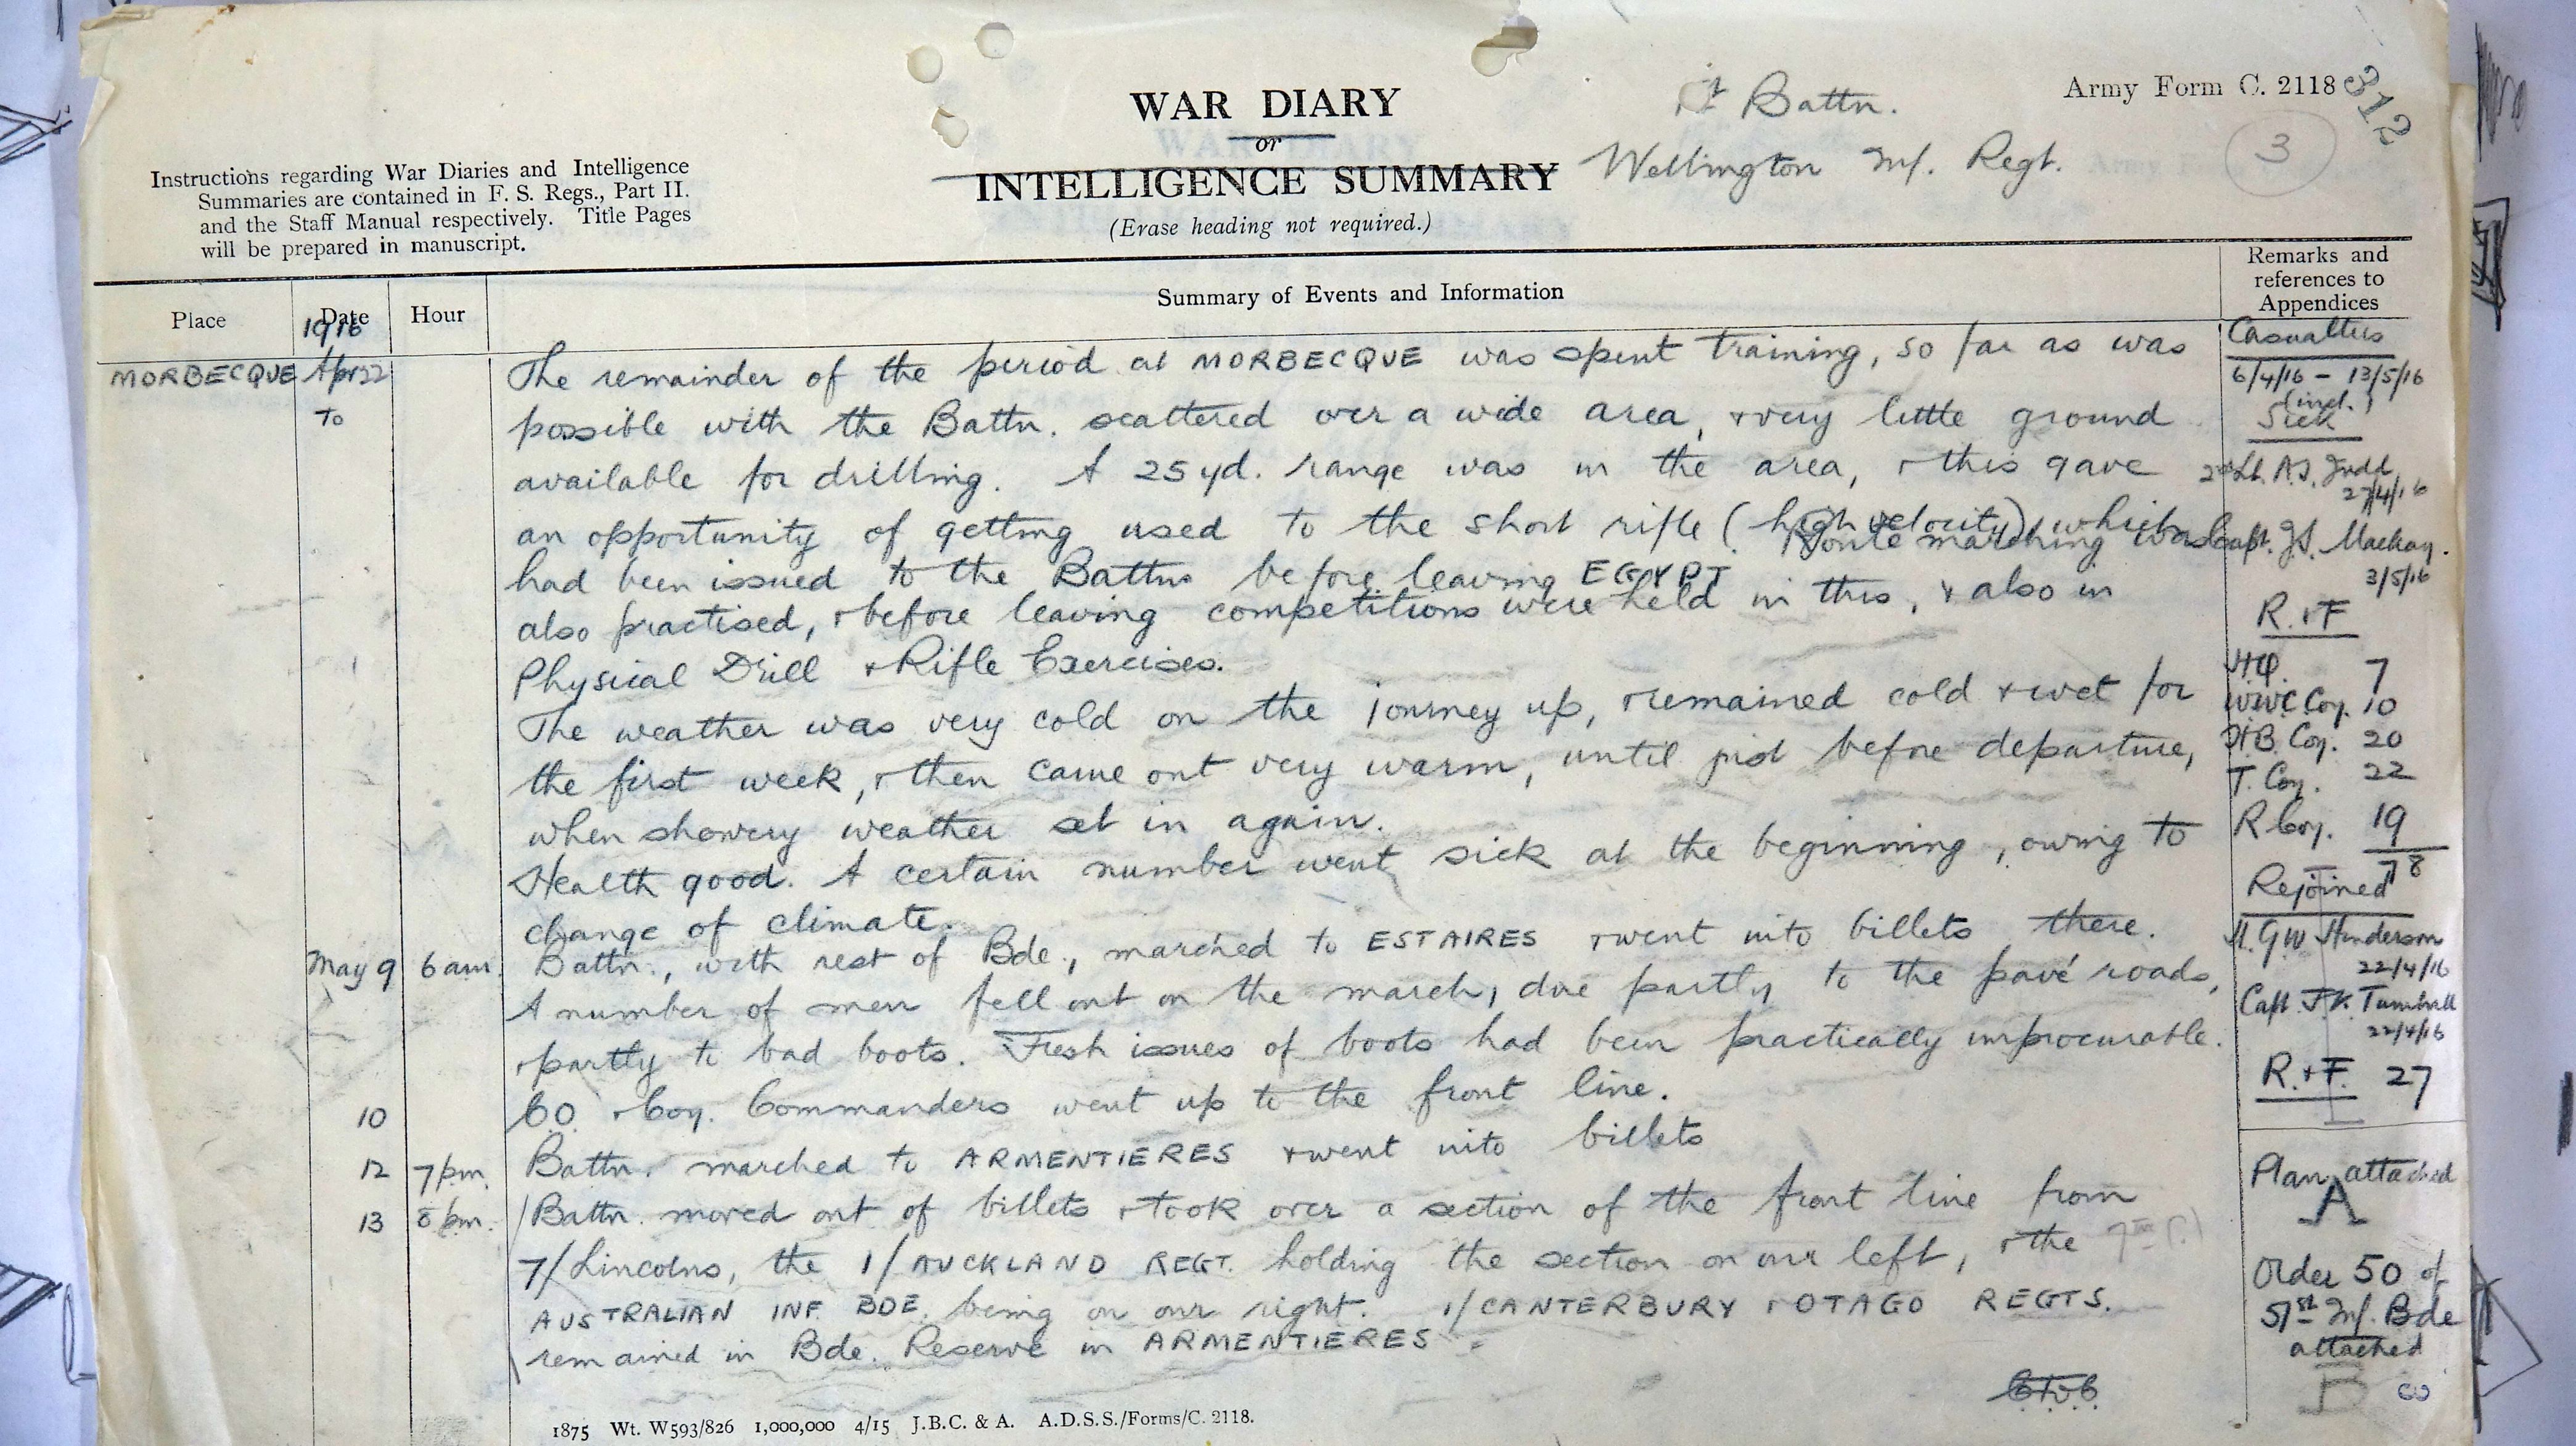 WAR DIARY
or
INTELLIGENCE SUMMARY
(Erase heading not required.)
Battn.
Wellington Inf. Regt.
Army Form C. 2118
312
3
Instructions regarding War Diaries and Intelligence
Summaries are contained in F. S. Regs., Part II.
and the Staff Manual respectively. Title Pages
will be prepared in manuscript.
Place
Date
1916
Hour
Summary of Events and Information
Remarks and
references to
Appendices
MORBECQUE Apr 22 The remainder of the period at MORBECQUE was spent training, so far as was
To possible with the Battn. scattered over a wide area, & very little ground
available for drilling. A 25 yd. range was in the area, & this gave
an opportunity of getting used to the short rifle (high velocity) which
had been issued to the Battns before leaving EGYPT. Route marching was
also practised, & before leaving competitions were held in this, & also in
Physical Drill & Rifle Exercises.
The weather was very cold on the journey up, & remained cold & wet for
the first week, & then came out very warm, until just before departure,
when showery weather set in again.
Health good. A certain number went sick at the beginning, owing to
change of climate.
May 9 6 am. Battn., with rest of Bde., marched to ESTAIRES & went into billets there.
A number of men fell out on the march, due partly to the pavé roads,
& partly to bad boots. Fresh issues of boots had been practically improcurable.
10 CO. & Coy. Commanders went up to the front line.
12 7 pm. Battn. marched to ARMENTIERES & went into billets
13 8 pm. Battn. moved out of billets & took over a section of the front line from
7/Lincolns, the 1/AUCKLAND REGT. holding the section on our left, & the
AUSTRALIAN INF. BDE. being on our right. 1/CANTERBURY & OTAGO REGTS.
remained in Bde. Reserve in ARMENTIERES.
Casualties
6/4/16 - 13/5/16
(incl.)
Sick
2nd Lt. A.S. Judd
27/4/16
Capt. Mackay.
3/5/16
R. & F
HQ. 7
W.W.C Coy. 10
H.B. Coy. 20
T. Coy. 22
R Coy. 19
78
Rejoined
Lt. G W Henderson
22/4/16
Capt. Turnbull
22/4/16
R. & F. 27
Plan attached
A
Order 50 of
51st Inf. Bde
attached
B
8
1875 Wt. W593/826 1,000,000 4/15 J.B.C. & A. A.D.S.S./Forms/C. 2118.